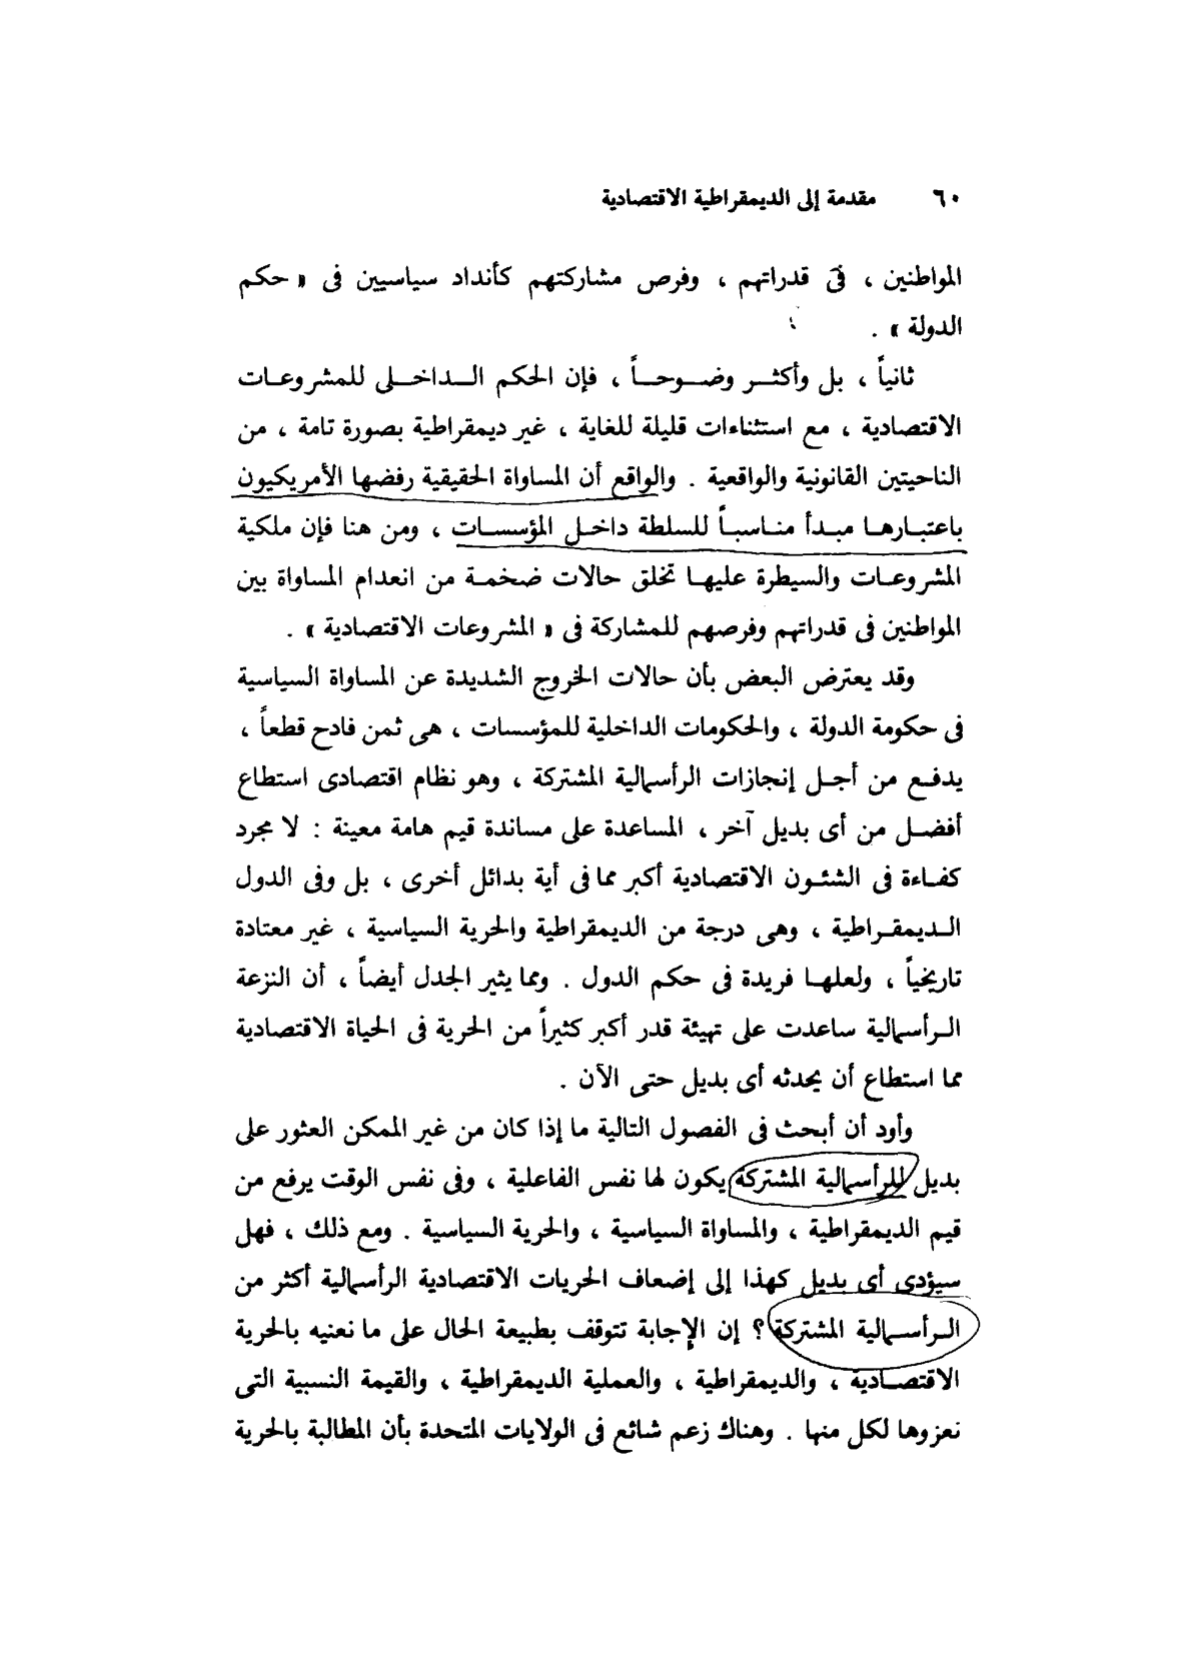 ٦٠ مقدمة إلى الديمقراطية الاقتصادية
المواطنين ، فى قدراتهم ، وفرص مشاركتهم كأنداد سياسيين فى « حكم
الدولة » .
ثانياً ، بل وأكثر وضوحاً ، فإن الحكم الداخلى للمشروعات
الاقتصادية ، مع استثناءات قليلة للغاية ، غير ديمقراطية بصورة تامة ، من
الناحيتين القانونية والواقعية . والواقع أن المساواة الحقيقية رفضها الأمريكيون
باعتبارها مبدأ مناسباً للسلطة داخل المؤسسات ، ومن هنا فإن ملكية
المشروعات والسيطرة عليها تخلق حالات ضخمة من انعدام المساواة بين
المواطنين فى قدراتهم وفرصهم للمشاركة فى « المشروعات الاقتصادية » .
وقد يعترض البعض بأن حالات الخروج الشديدة عن المساواة السياسية
فى حكومة الدولة ، والحكومات الداخلية للمؤسسات ، هى ثمن فادح قطعاً ،
يدفع من أجل إنجازات الرأسمالية المشتركة ، وهو نظام اقتصادى استطاع
أفضل من أى بديل آخر ، المساعدة على مساندة قيم هامة معينة : لا مجرد
كفاءة فى الشئون الاقتصادية أكبر مما فى أية بدائل أخرى ، بل وفى الدول
الديمقراطية ، وهى درجة من الديمقراطية والحرية السياسية ، غير معتادة
تاريخياً ، ولعلها فريدة فى حكم الدول . ومما يثير الجدل أيضاً ، أن النزعة
الرأسمالية ساعدت على تهيئة قدر أكبر كثيراً من الحرية فى الحياة الاقتصادية
مما استطاع أن يحدثه أى بديل حتى الآن .
وأود أن أبحث فى الفصول التالية ما إذا كان من غير الممكن العثور على
بديل للرأسمالية المشتركة يكون لها نفس الفاعلية ، وفى نفس الوقت يرفع من
قيم الديمقراطية ، والمساواة السياسية ، والحرية السياسية . ومع ذلك ، فهل
سيؤدى أى بديل كهذا إلى إضعاف الحريات الاقتصادية الرأسمالية أكثر من
الرأسمالية المشتركة ؟ إن الإجابة تتوقف بطبيعة الحال على ما نعنيه بالحرية
الاقتصادية ، والديمقراطية ، والعملية الديمقراطية ، والقيمة النسبية التى
نعزوها لكل منها . وهناك زعم شائع فى الولايات المتحدة بأن المطالبة بالحرية